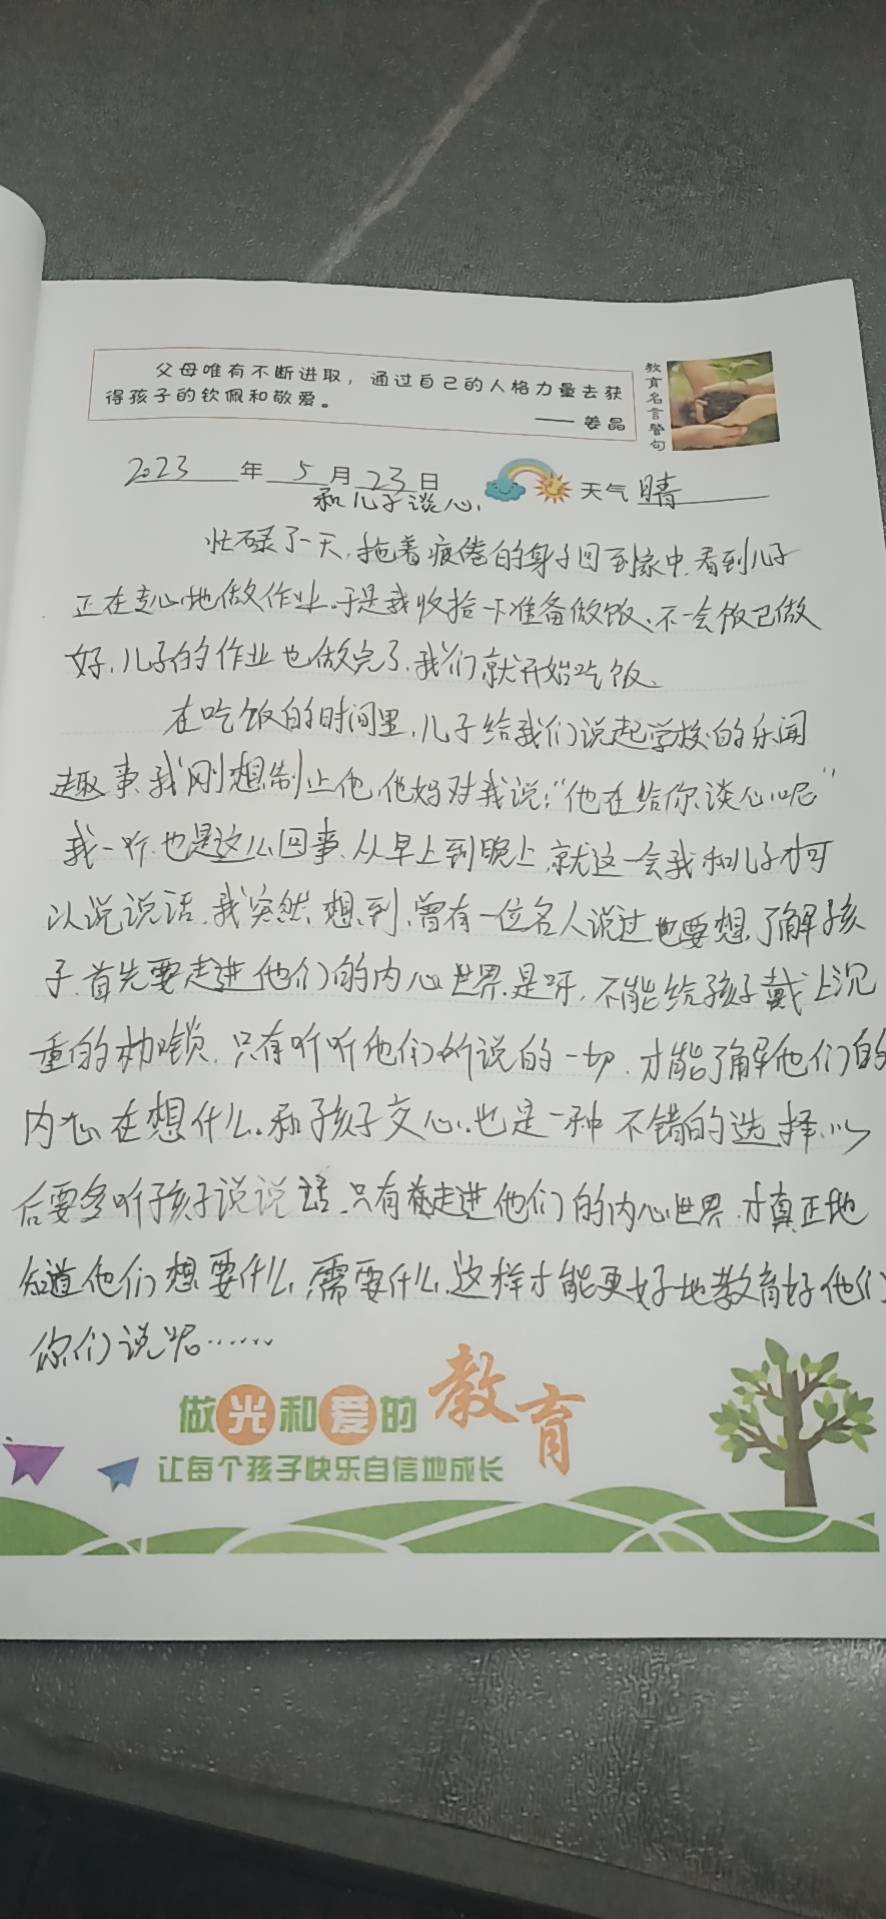 父母唯有不断进取，通过自己的人格力量去获
得孩子的钦佩和敬爱。
——姜晶
教育名言警句
2023年5月23日 天气 晴
和儿子谈心
忙碌了一天,拖着疲倦的身子回到家中.看到儿子
正在专心地做作业.于是我收拾一下准备做饭.不一会饭已做
好,儿子的作业也做完了.我们就开始吃饭.
在吃饭的时间里,儿子给我们说起学校的乐闻
趣事.我刚想制止他,他妈对我说:“他在给你谈心呢”
我一听也是这么回事.从早上到晚上,就这一会我和儿子才可
以说说话.我突然想到,曾有一位名人说过也要想了解孩
子.首先要走进他们的内心世界.是呀,不能给孩子戴上沉
重的枷锁.只有听听他们所说的一切.才能了解他们的
内心在想什么.和孩子交心.也是一种不错的选择.以
后要多听孩子说说话.只有走进他们的内心世界.才真正地
知道他们想要什么,需要什么.这样才能更好地教育好他们
你们说呢……
做光和爱的教育
让每个孩子快乐自信地成长